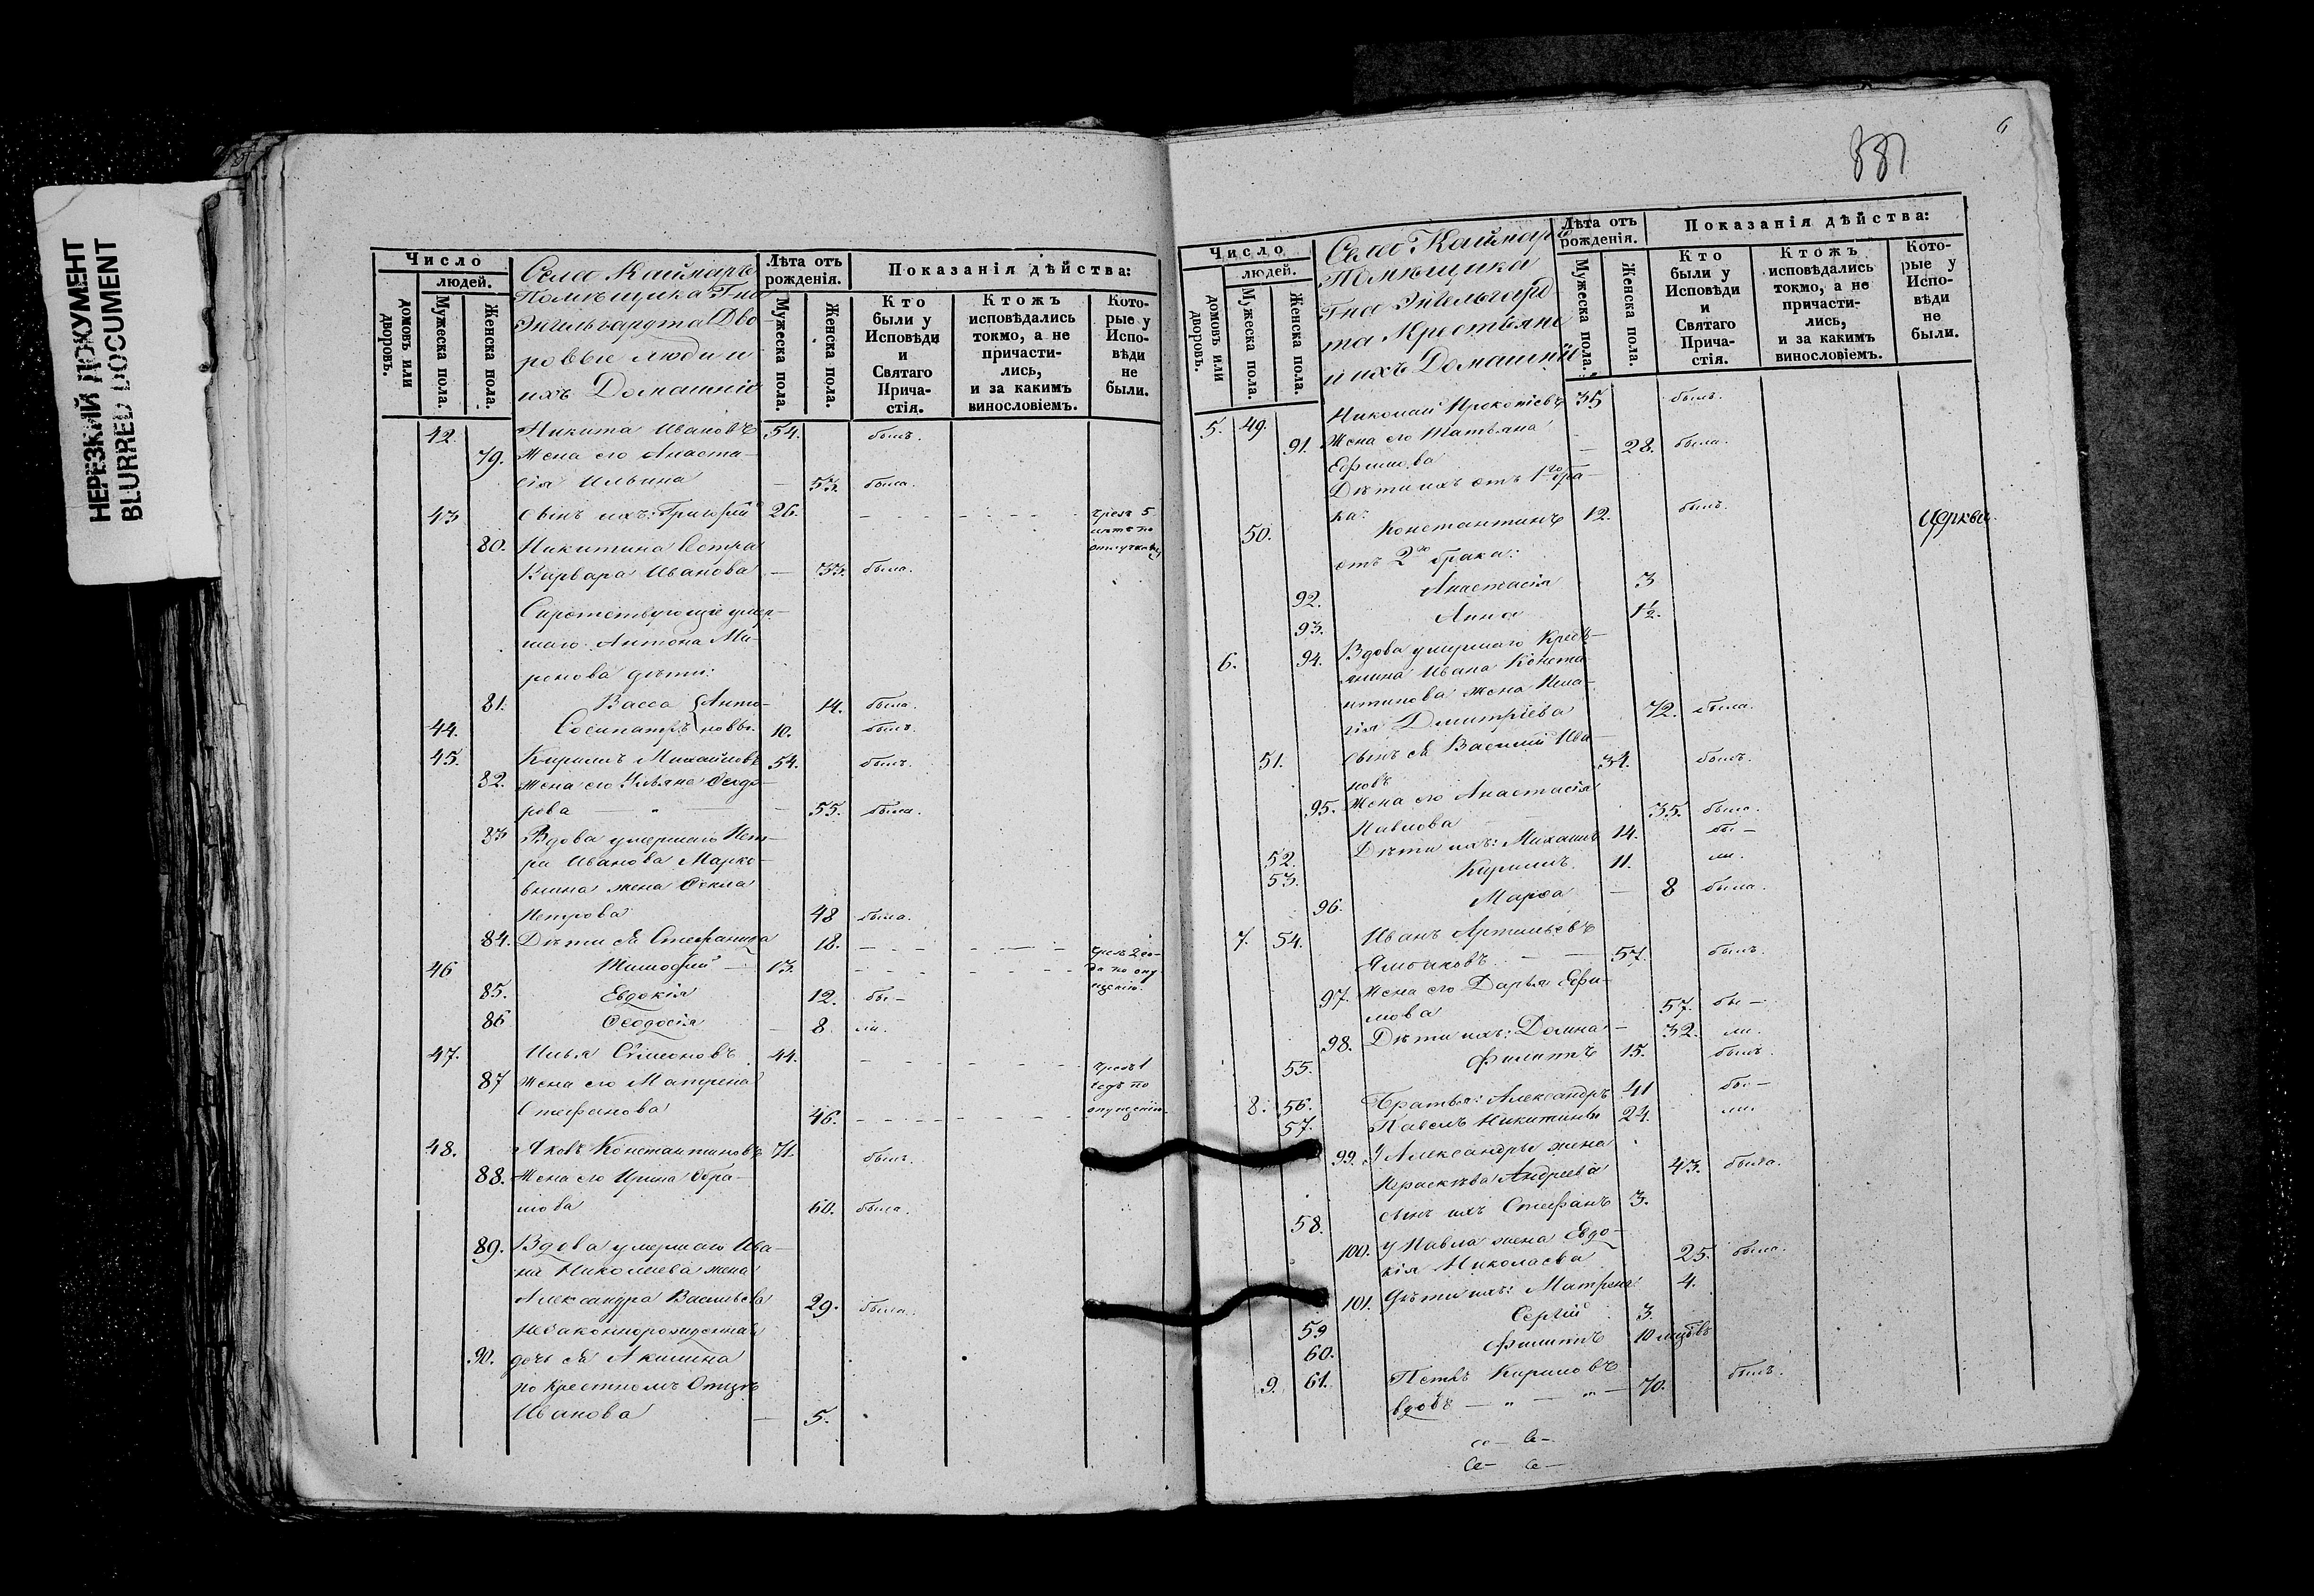 НЕРЕЗКИЙ ДОКУМЕНТ
BLURRED DOCUMENT
Число
людей.
домовъ или дворовъ.
Мужеска пола.
Женска пола.
Села Каймаръ
Помѣщика Гна
Энгельгардта Дво-
ровые люди и
ихъ Домашніе
Лѣта отъ рожденія.
Мужеска пола.
Женска пола.
Показанія дѣйства:
Кто были у Исповѣди и Святаго Прича-стія.
Ктожъ исповѣдались токмо, а не причасти-лись, и за какимъ винословіемъ.
Кото-рые у Испо-вѣди не были.
42. Никита Ивановъ 54. былъ.
79. Жена его Анаста-
сія Ильина — 53. была.
43 Сынъ ихъ: Григорій 26. чрезъ 5
80. Никитина Сестра
Варвара Иванова — 33. была.
Сиротствующіе умер-
шаго Антона Ми-
ронова дѣти:
81. Васса Анто- 14. была.
44. Сосипатръ новы. 10. былъ.
45. Кирилъ Михайловъ 54. былъ.
82. Жена его Ульяна Ѳеодо-
рова — " — 55. была.
83 Вдова умершаго Пет-
ра Иванова Марко-
внина жена Ѳекла
Петрова 48 была.
84. Дѣти ея Стефанида 18. чрезъ 2 го-
46 Тимофей — 13. да по опу-
щенію.
85. Евдокія 12. бы-
86 Ѳеодосія — 8. ли.
47. Илья Симеоновъ 44. чрезъ 1
87 Жена его Матрена годъ по
Стефанова 46. опущенію.
48. Яковъ Константиновъ 71. былъ.
88. Жена его Ирина Абра-
мова 60. была.
89. Вдова умершаго Ива-
на Николаева жена
Александра Васильева 29. была.
Незаконнорожденная
90. дочь ея Акилина
по крестномъ Отцѣ
Иванова — 5.
881
6
Число
людей.
домовъ или дворовъ.
Мужеска пола.
Женска пола.
Село Каймаръ
Помѣщика
Гна Энгельгард-
та Крестьяне
и ихъ Домашніе
Лѣта отъ рожденія.
Мужеска пола.
Женска пола.
Показанія дѣйства:
Кто были у Исповѣди и Святаго Прича-стія.
Ктожъ исповѣдались токмо, а не причасти-лись, и за какимъ винословіемъ.
Кото-рые у Испо-вѣди не были.
5. 49. Николай Прокопіевъ 35 былъ.
91. Жена его Татьяна
Ефимова — 28. была.
Дѣти ихъ отъ 1го бра-
ка:
50. Константинъ 12. былъ. Церкви
отъ 2го брака:
92. Анастасія 3
93. Анна 1½.
6. 94. Вдова умершаго Крест-
янина Ивана Конста-
нтинова жена Пела-
гія Димитріева 72. была.
51. Сынъ ея Василій Ива-
новъ 34. былъ.
95. Жена его Анастасія
Павлова 35. была.
52. Дѣти ихъ: Михаилъ 14. бы-
53. Кирилъ. 11. ли.
96. Марѳа — 8 была.
7. 54. Иванъ Артемьевъ
— 57. былъ.
97. Жена его Дарья Ефи-
мова 57. бы-
98. Дѣти ихъ: Домна — 32. ли.
55. Филиппъ 15. былъ.
8. 56. Братья: Александръ 41 бы-
57. Павелъ Никитины 24. ли.
99. У Александры жена
Параскева Андреева 43. была.
58. сынъ ихъ Стефанъ 3.
100. У Павла жена Евдо-
кія Николаева 25. была.
101. Дѣти ихъ: Матрена 4.
59 Сергій 3.
60. Филиппъ 10 мцовъ
9. 61. Петръ Кириловъ
вдовъ — " — " — 70. былъ.